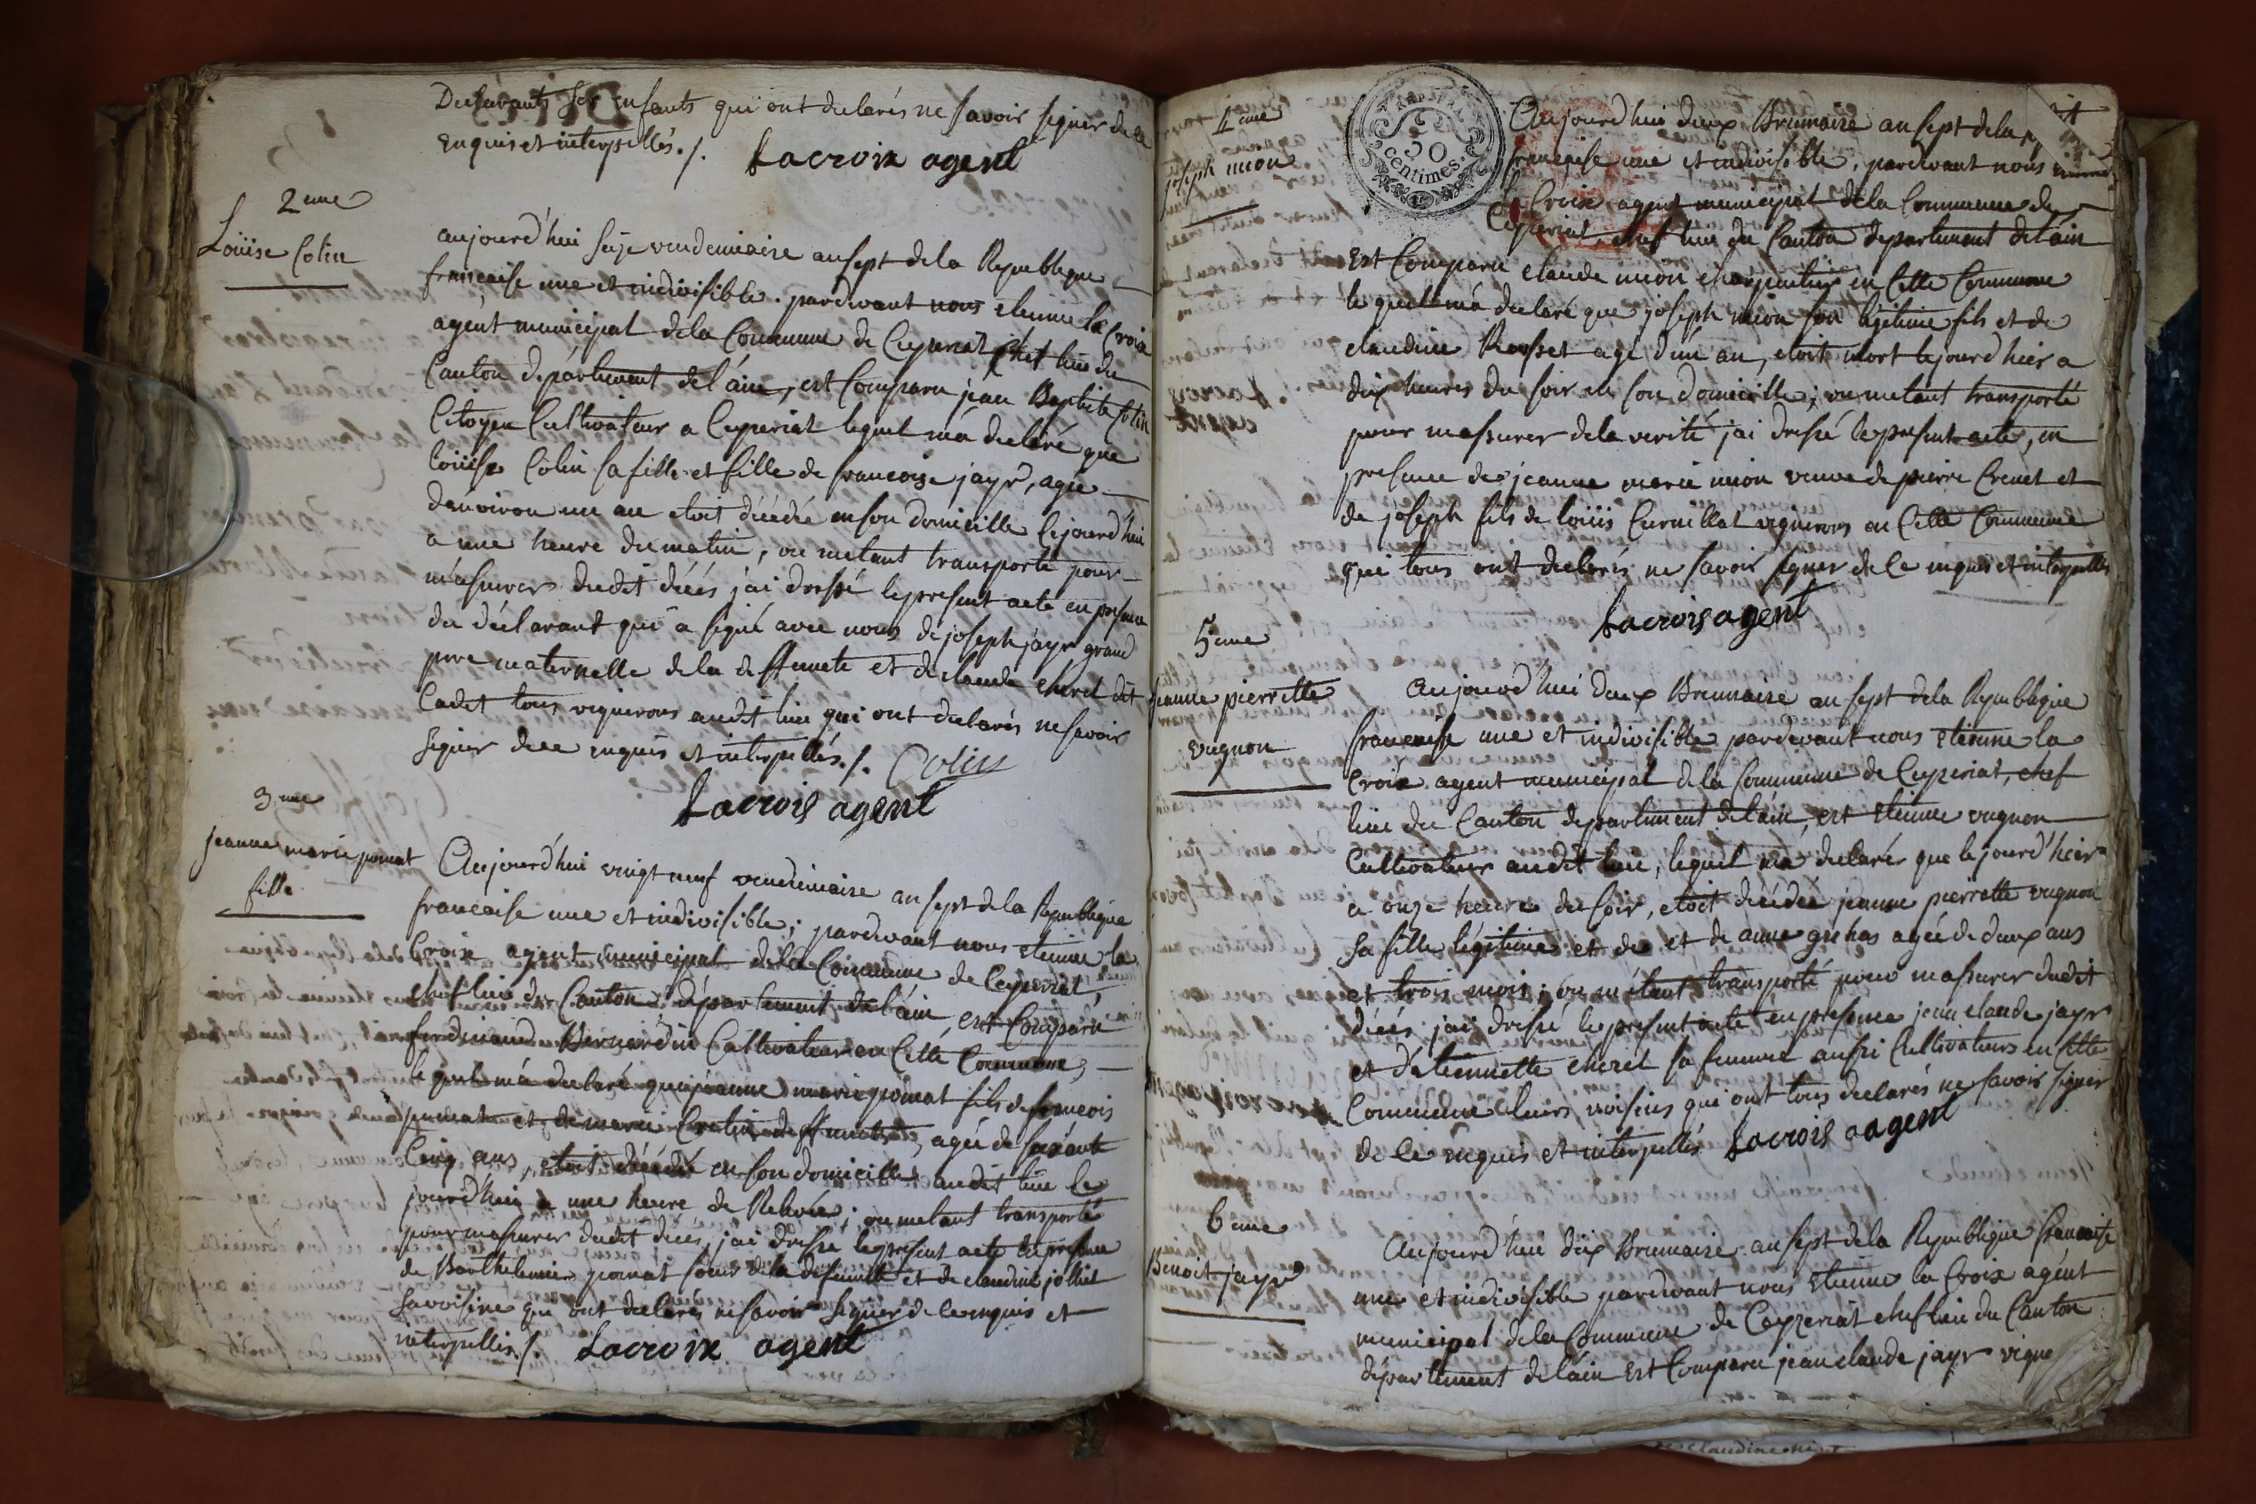 Declarants ses enfants qui ont declarés ne savoir signer de ce
enquis et interpellés ./. Lacroix agent
2eme
Loüise Colin
aujourd'hui seize vendemiaire an sept de la Republique
française une et indivisible. pardevant nous etienne la Croix
agent municipal de la Commune de Ceyzeriat Chef lieu du
Canton département de l'ain, est Comparu jean Baptiste Colin
Citoyen Cultivateur a Ceyzeriat lequel m'a declaré que
loüise Colin sa fille et fille de francoise jayr, agée
d'environ un an etoit décédée en son domicille cejourd'hui
a une heure du matin, ou m'etant transporté pour
m'assurer dudit décés j'ai dressé le present acte en presence
du déclarant qui a signé avec nous de joseph jayr grand
pere maternelle de la deffunete et de claude cheret dit
Cadet tous vignerons audit lieu qui ont declarés ne savoir
signer de ce enquis et interpellés ./. Colin
Lacroix agent
3eme
jeanne marie pomat
fille
Aujourd'hui vingt neuf vendemiaire an sept de la Republique
francaise une et indivisible; pardevant nous etienne la
Croix agent municipal de la Commune de Ceyzeriat
chef lieu de Canton, département de l'ain, est Comparu
ferdinand Bernardin Cultivateur en Cette Commune,
lequel m'a declaré que jeanne marie pomat fils de francois
pomat et de marie Cretin deffunets, agée de soixante
Cinq ans, etoit décédé en son domicille audit lieu le
jourd'hui a une heure de Relevée; ou m'etant transporté
pour m'assurer dudit décés, j'ai dressé le present acte en presence
de Barthelemie pomat soeur de la defunete et de claudine jolliet
sa voisine qui ont declarés ne savoir signer de ce enquis et
interpellés ./. Lacroix agent
4eme
joseph mion
30
centimes.
Aujourd'hui deux Brumaire an sept de la
francaise une et indivisible, pardevant nous
la Croix agent municipal de la Commune de
Ceyzeriat, chef lieu du Canton departement de l'ain
Est Comparu claude mion charpentier en Cette Commune
le quel m'a declaré que joseph mion son legitime fils et de
claudine Rousset agé d'un an, etoit mort le jourd'hier a
dix heures du soir en son domicille; ou m'etant transporté
pour m'assurer de la verité j'ai dressé le present acte, en
presence de jeanne marie mion veuve de pierre Crenet et
de joseph fils de loüis Curnillat vignerons en Cette Commune
qui tous ont declarés ne savoir signer de ce enquis et interpellés
Lacroix agent
5eme
jeanne pierrette
vugnon
Aujourd'hui deux Brumaire an sept de la Republique
francaise une et indivisible pardevant nous etienne la
Croix agent municipal de la Commune de Ceyzeriat, chef
lieu du Canton departement de l'ain, est etienne vugnon
Cultivateur audit lieu, lequel m'a declaré que le jourd'hier
a onze heures du soir, etoit décédée jeanne pierrette vugnon
sa fille légitime et de et de anne agée de deux ans
et trois mois; ou m'étant transporté pour m'assurer dudit
décés j'ai dressé le present acte en presence jean claude jayr
et d'etiennette cheret sa femme aussi Cultivateurs en Cette
Commune leurs voisins qui ont tous declarés ne savoir signer
de ce enquis et interpellés Lacroix agent
6eme
Benoit jayr
Aujourd'hui dix Brumaire an sept de la Republique francaise
une et indivisible pardevant nous etienne la Croix agent
municipal de la Commune de Ceyzeriat chef lieu du Canton
département de l'ain Est Comparu jean claude jayr vigne